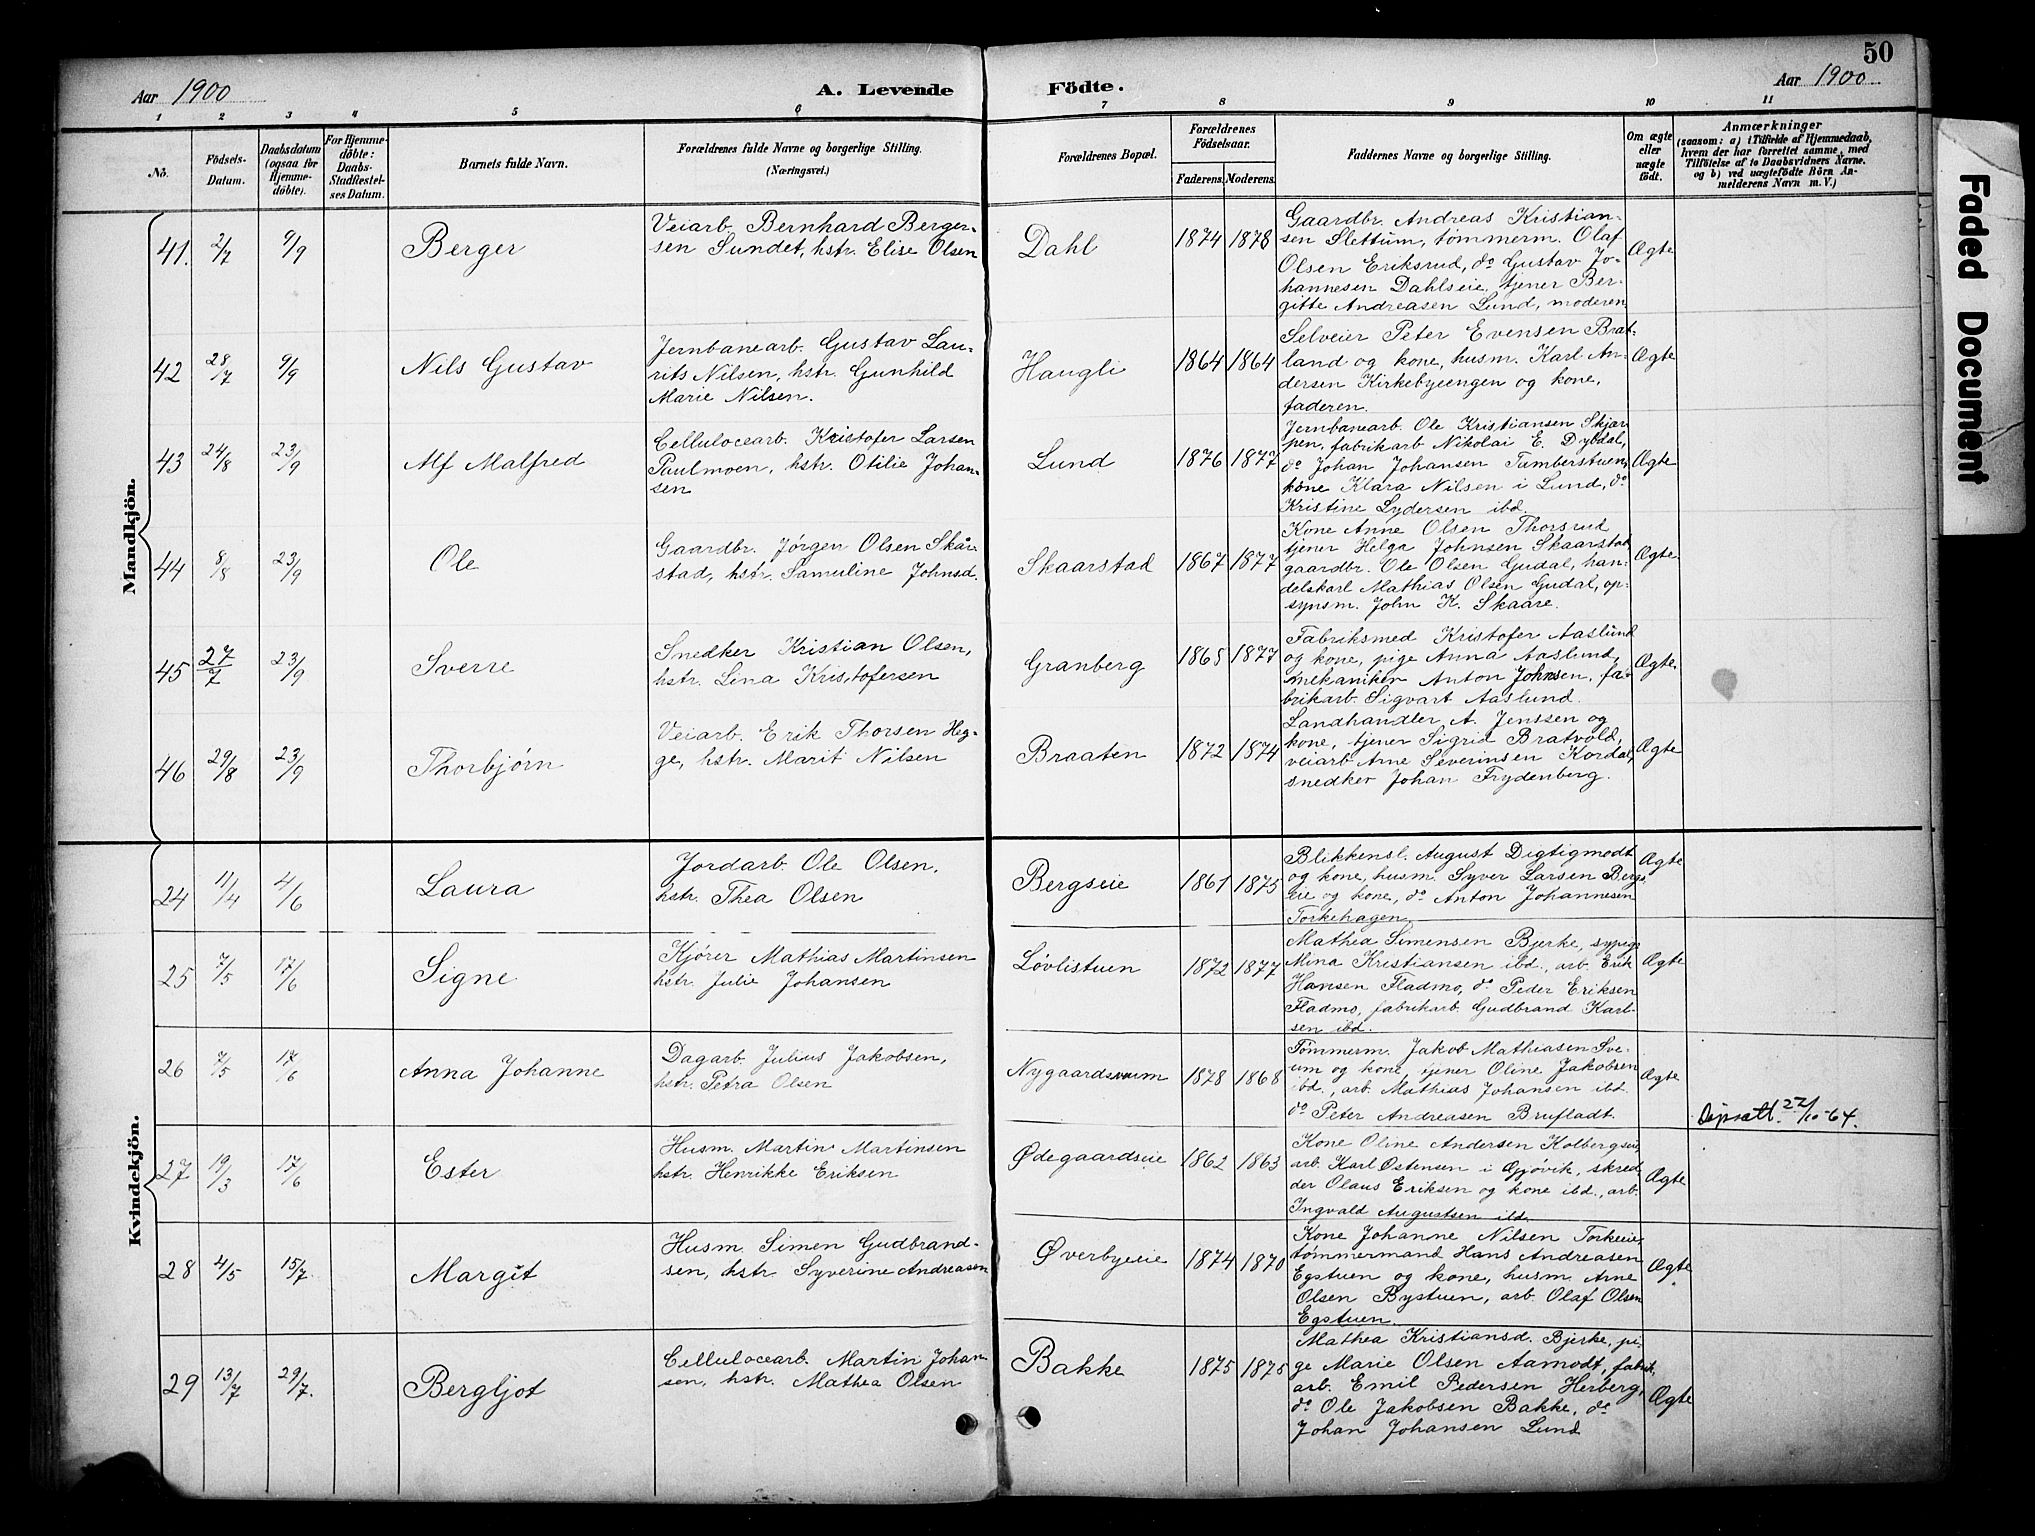 50
Aar 1900
A. Levende
Födte.
Aar 1900
1 2 3 4 5 6 7 8 9 10 11
No.
Födsels-
Datum.
Daabsdatum
(ogsaa for
Hjemme-
döbte).
For Hjemme-
döbte:
Daabs-
Stadfæstel-
ses Datum.
Barnets fulde Navn.
Forældrenes fulde Navne og borgerlige Stilling.
(Næringsvei.)
Forældrenes Bopæl.
Forældrenes
Födselsaar.
Faderens.
Moderens.
Faddernes Navne og borgerlige Stilling.
Om ægte
eller
uægte
født.
Anmærkninger
(saasom: a) i Tilfælde af Hjemmedaab,
hvem der har forrettet samme, med
Tilföielse af to Daabsvidners Navne.
og b) ved uægtefödte Börn An-
melderens Navn m. V.)
Mandkjön.
41. 2/7 9/9
Berger
Veiarb. Bernhard Berger-
sen Sundet, hstr. Elise Olsen
Dahl
1874 1878
Gaardbr. Andreas Kristian-
sen Slettum, tømmerm. Olaf
Olsen Eriksrud, do Gustav Jo-
hannesen Dahlseie, tjener Ber-
gitte Andreasen Lund, moderen
Ægte
42 28/7 9/9
Nils Gustav
Jernbanearb. Gustav Lau-
rits Nilsen, hstr. Gunhild
Marie Nilsen.
Haugli
1864 1864
Selveier Peter Evensen Brat-
land og kone, husm. Karl An-
dersen Kirkebyeengen og kone,
faderen.
Ægte
43 24/8 23/9
Alf Malfred
Cellulocearb. Kristofer Larsen
Paulmoen, hstr. Otilie Johan-
sen
Lund
1876 1877
Jernbanearb. Ole Kristiansen Skjær-
pen, fabrikarb Nikolai E. Dybdal,
do Johan Johansen Tumberstuen,
kone Klara Nilsen i Lund, do
Kristine Lydersen ibd.
Ægte
44 8/8 23/9
Ole
Gaardbr. Jørgen Olsen Skår-
stad, hstr. Samuline Johnsd.
Skaarstad
1867 1877
Kone Anne Olsen Thorsrud
tjener Helga Johnsen Skaarstad,
gaardbr. Ole Olsen Gudal, han-
delskarl Mathias Olsen Gudal, op-
synsm. John K. Skaare.
Ægte
45 27/7 23/9
Sverre
Snedker Kristian Olsen,
hstr. Lina Kristofersen
Granberg
1865 1877
Fabriksmed Kristofer Aaslund
og kone, pige Anna Aaslund,
mekaniker Anton Johnsen, fa-
brikarb. Sigvart Aaslund.
Ægte
46 29/8 23/9
Thorbjørn
Veiarb. Erik Thorsen Heg-
ge, hstr. Marit Nilsen
Braaten
1872 1874
Landhandler A. Jenssen og
kone, tjener Sigrid Bratvold,
veiarb Arne Severinsen Kordal,
snedker Johan Frydenberg.
Ægte
Kvindekjön.
24 11/4 4/6
Laura
Jordarb. Ole Olsen,
hstr. Thea Olsen
Bergseie
1861 1875
Blikkensl. August Digtigmodt
og kone, husm. Syver Larsen Bergs-
eie og kone, do Anton Johannesen
Torkehagen
Ægte
25 7/5 17/6
Signe
Kjører Mathias Martinsen
hstr. Julie Johansen
Løvlistuen
1872 1877
Mathea Simensen Bjerke, sypige
Mina Kristiansen ibd., arb. Erik
Hansen Fladmo, do Peder Eriksen
Fladmo, fabrikarb. Gudbrand Karl-
sen ibd.
Ægte
26 7/5 17/6
Anna Johanne
Dagarb. Julius Jakobsen,
hstr. Petra Olsen
1878 1868
Tømmerm. Jakob Mathiasen Sve-
um og kone, tjener Oline Jakobsen
ibd., arb. Mathias Johansen ibd.
do Peter Andreasen Brufladt.
Ægte
22/10-64.
27 19/3 17/6
Ester
Husm. Martin Martinsen
hstr. Henrikke Eriksen
Ødegaardseie
1862 1863
Kone Oline Andersen Kolbergseie
arb. Karl Østensen i Gjøvik, skred-
der Olaus Eriksen og kone ibd., arb.
Ingvald Augustsen ibd.
Ægte
28 4/5 15/7
Margit
Husm. Simen Gudbrand-
sen, hstr. Syverine Andreasen
Øverbyeie
1874 1870
Kone Johanne Nilsen Torkeeie,
tømmermand Hans Andreasen
Egstuen og kone, husm. Arne
Olsen Bystuen, arb. Olaf Olsen
Egstuen.
Ægte
29 13/7 29/7
Bergljot
Cellulocearb. Martin Johan-
sen, hstr. Mathea Olsen
Bakke
1875 1875
Mathea Kristiansd. Bjerke, pi-
ge Marie Olsen Aamodt, fabrik-
arb. Emil Pedersen Herberg,
do Ole Jakobsen Bakke, do
Johan Johansen Lund
Ægte
Faded Document